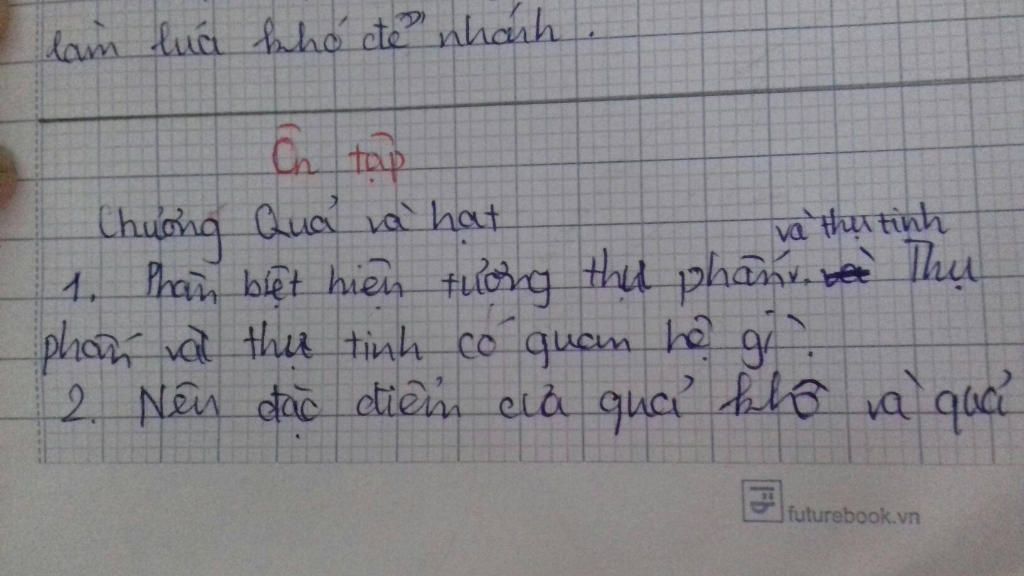 làm luá khó đẻ nhánh.
Ôn tập
Chương Quả và hạt
và thụ tinh
1. Phân biệt hiện tượng thụ phấn. Thụ
phấn và thụ tinh có quan hệ gì?
2. Nêu đặc điểm của quả khô và quả
futurebook.vn